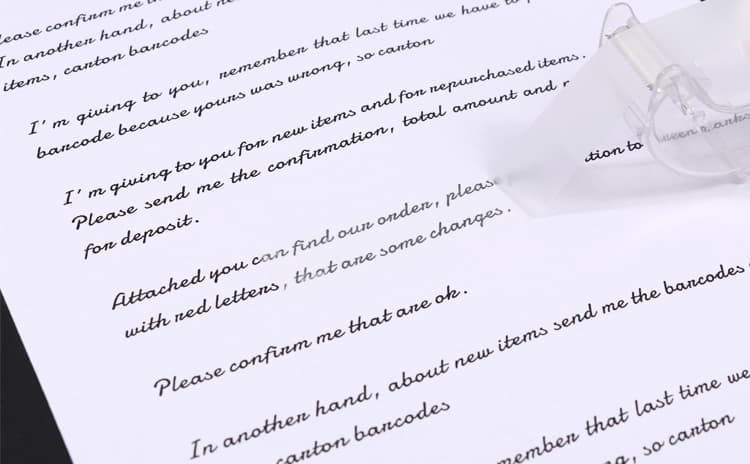 lease confirm me th
In another hand, about ne
items, canton barcodes
I'm giving to you, remember that last time we have to
barcode because yours was wrong, so canton
I'm giving to you for new items and for repurchased items.
Please send me the confirmation, total amount and
for deposit.
Attached you can find our order, pleas tion to
with red letters, that are some changes.
Please confirm me that are ok.
In another hand, about new items send me the barcodes
canton barcodes
member that last time we
ng, so canton